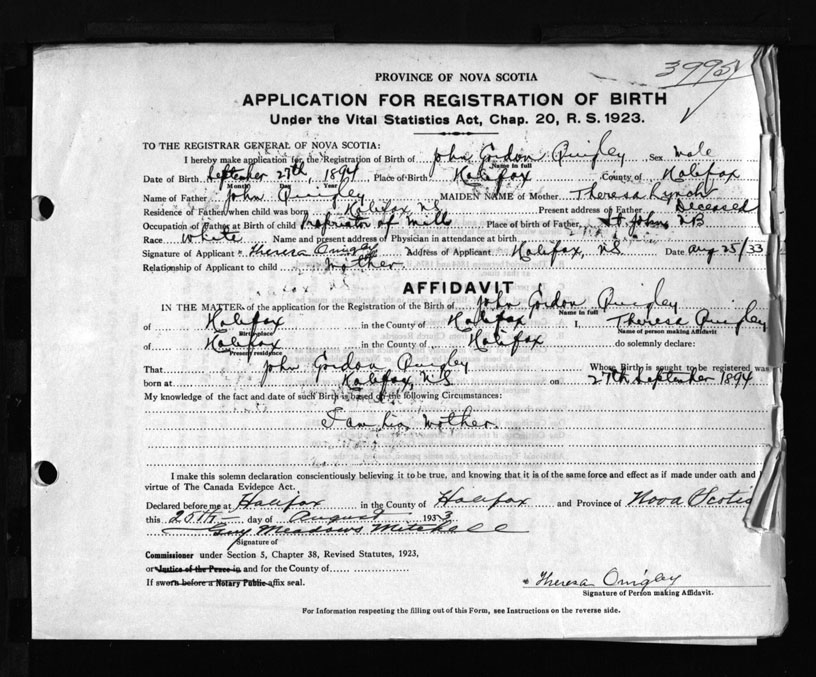 39954
PROVINCE OF NOVA SCOTIA
APPLICATION FOR REGISTRATION OF BIRTH
Under the Vital Statistics Act, Chap. 20, R. S. 1923.
TO THE REGISTRAR GENERAL OF NOVA SCOTIA:
I hereby make application for the Registration of Birth of John Gordon Quigley Sex male
Name in full
Date of Birth September 27th, 1894 Place of Birth Halifax County of Halifax
Month Day Year
Name of Father John Quigley MAIDEN NAME of Mother Theresa Lynch
Residence of Father when child was born Halifax, NS Present address of Father Deceased
Occupation of Father at Birth of child Proprietor of Mill Place of birth of Father St John, NB
Race White Name and present address of Physician in attendance at birth
Signature of Applicant Theresa Quigley Address of Applicant Halifax, NS Date Aug 25/33
Relationship of Applicant to child Mother.
AFFIDAVIT
IN THE MATTER of the application for the Registration of the Birth of John Gordon Quigley
Name in full
of Halifax in the County of Halifax I, Theresa Quigley
Birthplace Name of person making Affidavit
of Halifax in the County of Halifax do solemnly declare:
Present residence
That John Gordon Quigley Whose Birth is sought to be registered was
born at Halifax, NS on 27th September 1894
My knowledge of the fact and date of such Birth is based on the following Circumstances:
I am his mother.
I make this solemn declaration conscientiously believing it to be true, and knowing that it is of the same force and effect as if made under oath and
virtue of The Canada Evidence Act.
Declared before me at Halifax in the County of Halifax and Province of Nova Scotia
this 25th day of August 1933
Guy Meadows Mitchell
Signature of
Commissioner under Section 5, Chapter 38, Revised Statutes, 1923,
or Justice of the Peace in and for the County of
If sworn before a Notary Public affix seal.
Theresa Quigley
Signature of Person making Affidavit.
For Information respecting the filling out of this Form, see Instructions on the reverse side.